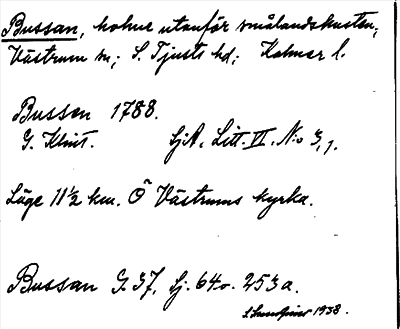 Bussan, holme utanför smålandskusten;
Västrum sn; S. Tjusts hd; Kalmar l.
Bussen 1788.
G. Klint. SjA. Litt. VI. No 3, 1.
Läge 11½ km. Ö Västrums kyrka.
Bussan G. 37, Sj. 64 o. 253 a.
1938.